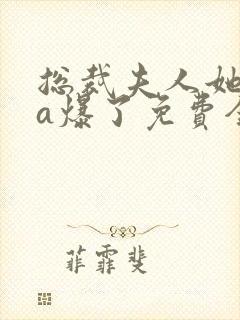 总裁夫人她
a爆了免费全
菲霏斐